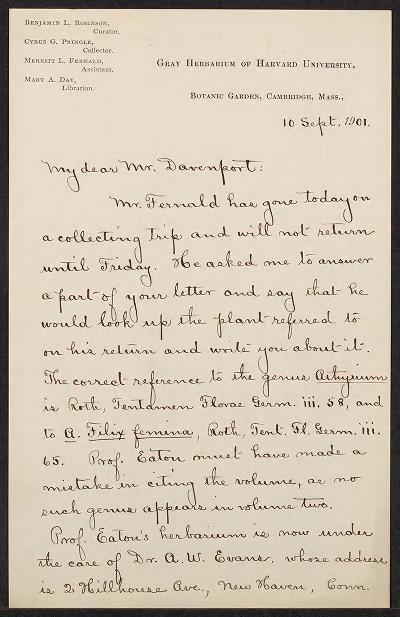 BENJAMIN L. ROBINSON,
Curator.
CYRUS G. PRINGLE,
Collector.
MERRITT L. FERNALD,
Assistant.
MARY A. DAY,
Librarian.
GRAY HERBARIUM OF HARVARD UNIVERSITY,
BOTANIC GARDEN, CAMBRIDGE, MASS.,
10 Sept. 1901.
My dear Mr. Davenport:
Mr. Fernald has gone today on
a collecting trip and will not return
until Friday. He asked me to answer
a part of your letter and say that he
would look up the plant referred to
on his return and write you about it.
The correct reference to the genus Athyrium
is Roth, Tentamen Florae Germ. iii. 58, and
to A. Filix femina, Roth, Tent. Fl. Germ. iii.
65. Prof. Eaton must have made a
mistake in citing the volume, as no
such genus appears in volume two.
Prof. Eaton's herbarium is now under
the care of Dr. A. W. Evans, whose address
is 2 Hillhouse Ave., New Haven, Conn.